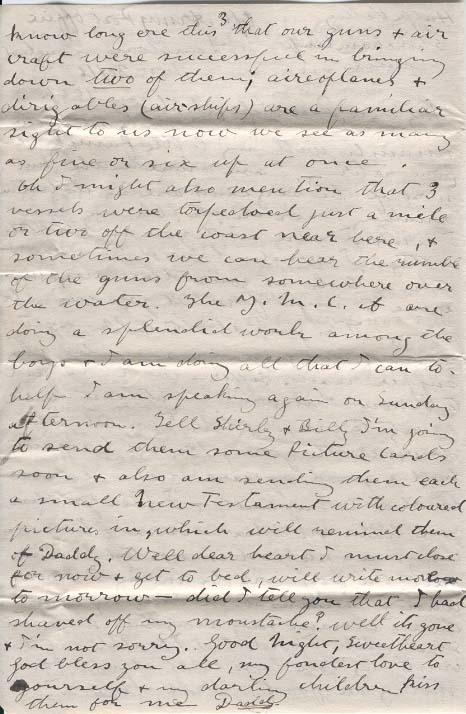 3
know long ere this that our guns & air
craft were successful in bringing
down two of them; aireoplanes &
dirigables (airships) are a familiar
sight to us now we see as many
as five or six up at once.
Oh I might also mention that 3
vessels were torpedoed just a mile
or two off the coast near here, &
sometimes we can hear the rumble
of the guns from somewhere over
the water. The Y.M.C.A are
doing a splendid work among the
boys & I am doing all that I can to
help I am speaking again on Sunday
afternoon. Tell Shirley & Billy I'm going
to send them some Picture Cards
soon & also am sending them each
a small New Testament with coloured
pictures in, which will remind them
of Daddy. Well dear heart I must close
for now & get to bed, will write more
to morrow — did I tell you that I had
shaved off my moustache? well its gone
& I'm not sorry. Good Night, Sweetheart
God bless you all, my fondest love to
yourself & my darling children kiss
them for me Daddy